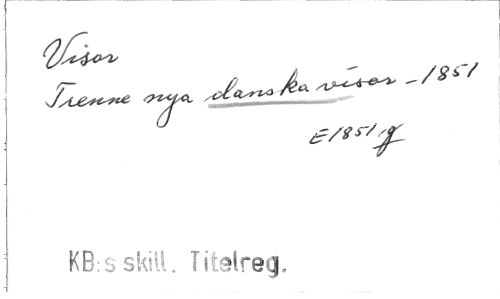 Visor
Trenne nya danska visor - 1851
E 1851 g
KB:s skill. Titelreg.